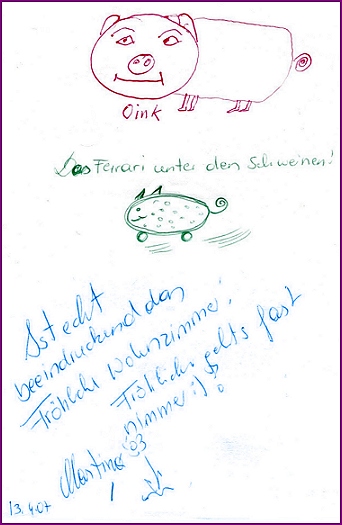 Oink
Das Ferrari unter den Schweinen!
Ist echt
beeindruckend das
Fröhliche Wohnzimmer!
Fröhlicher gehts fast
nimmer
Martina
13.4.07